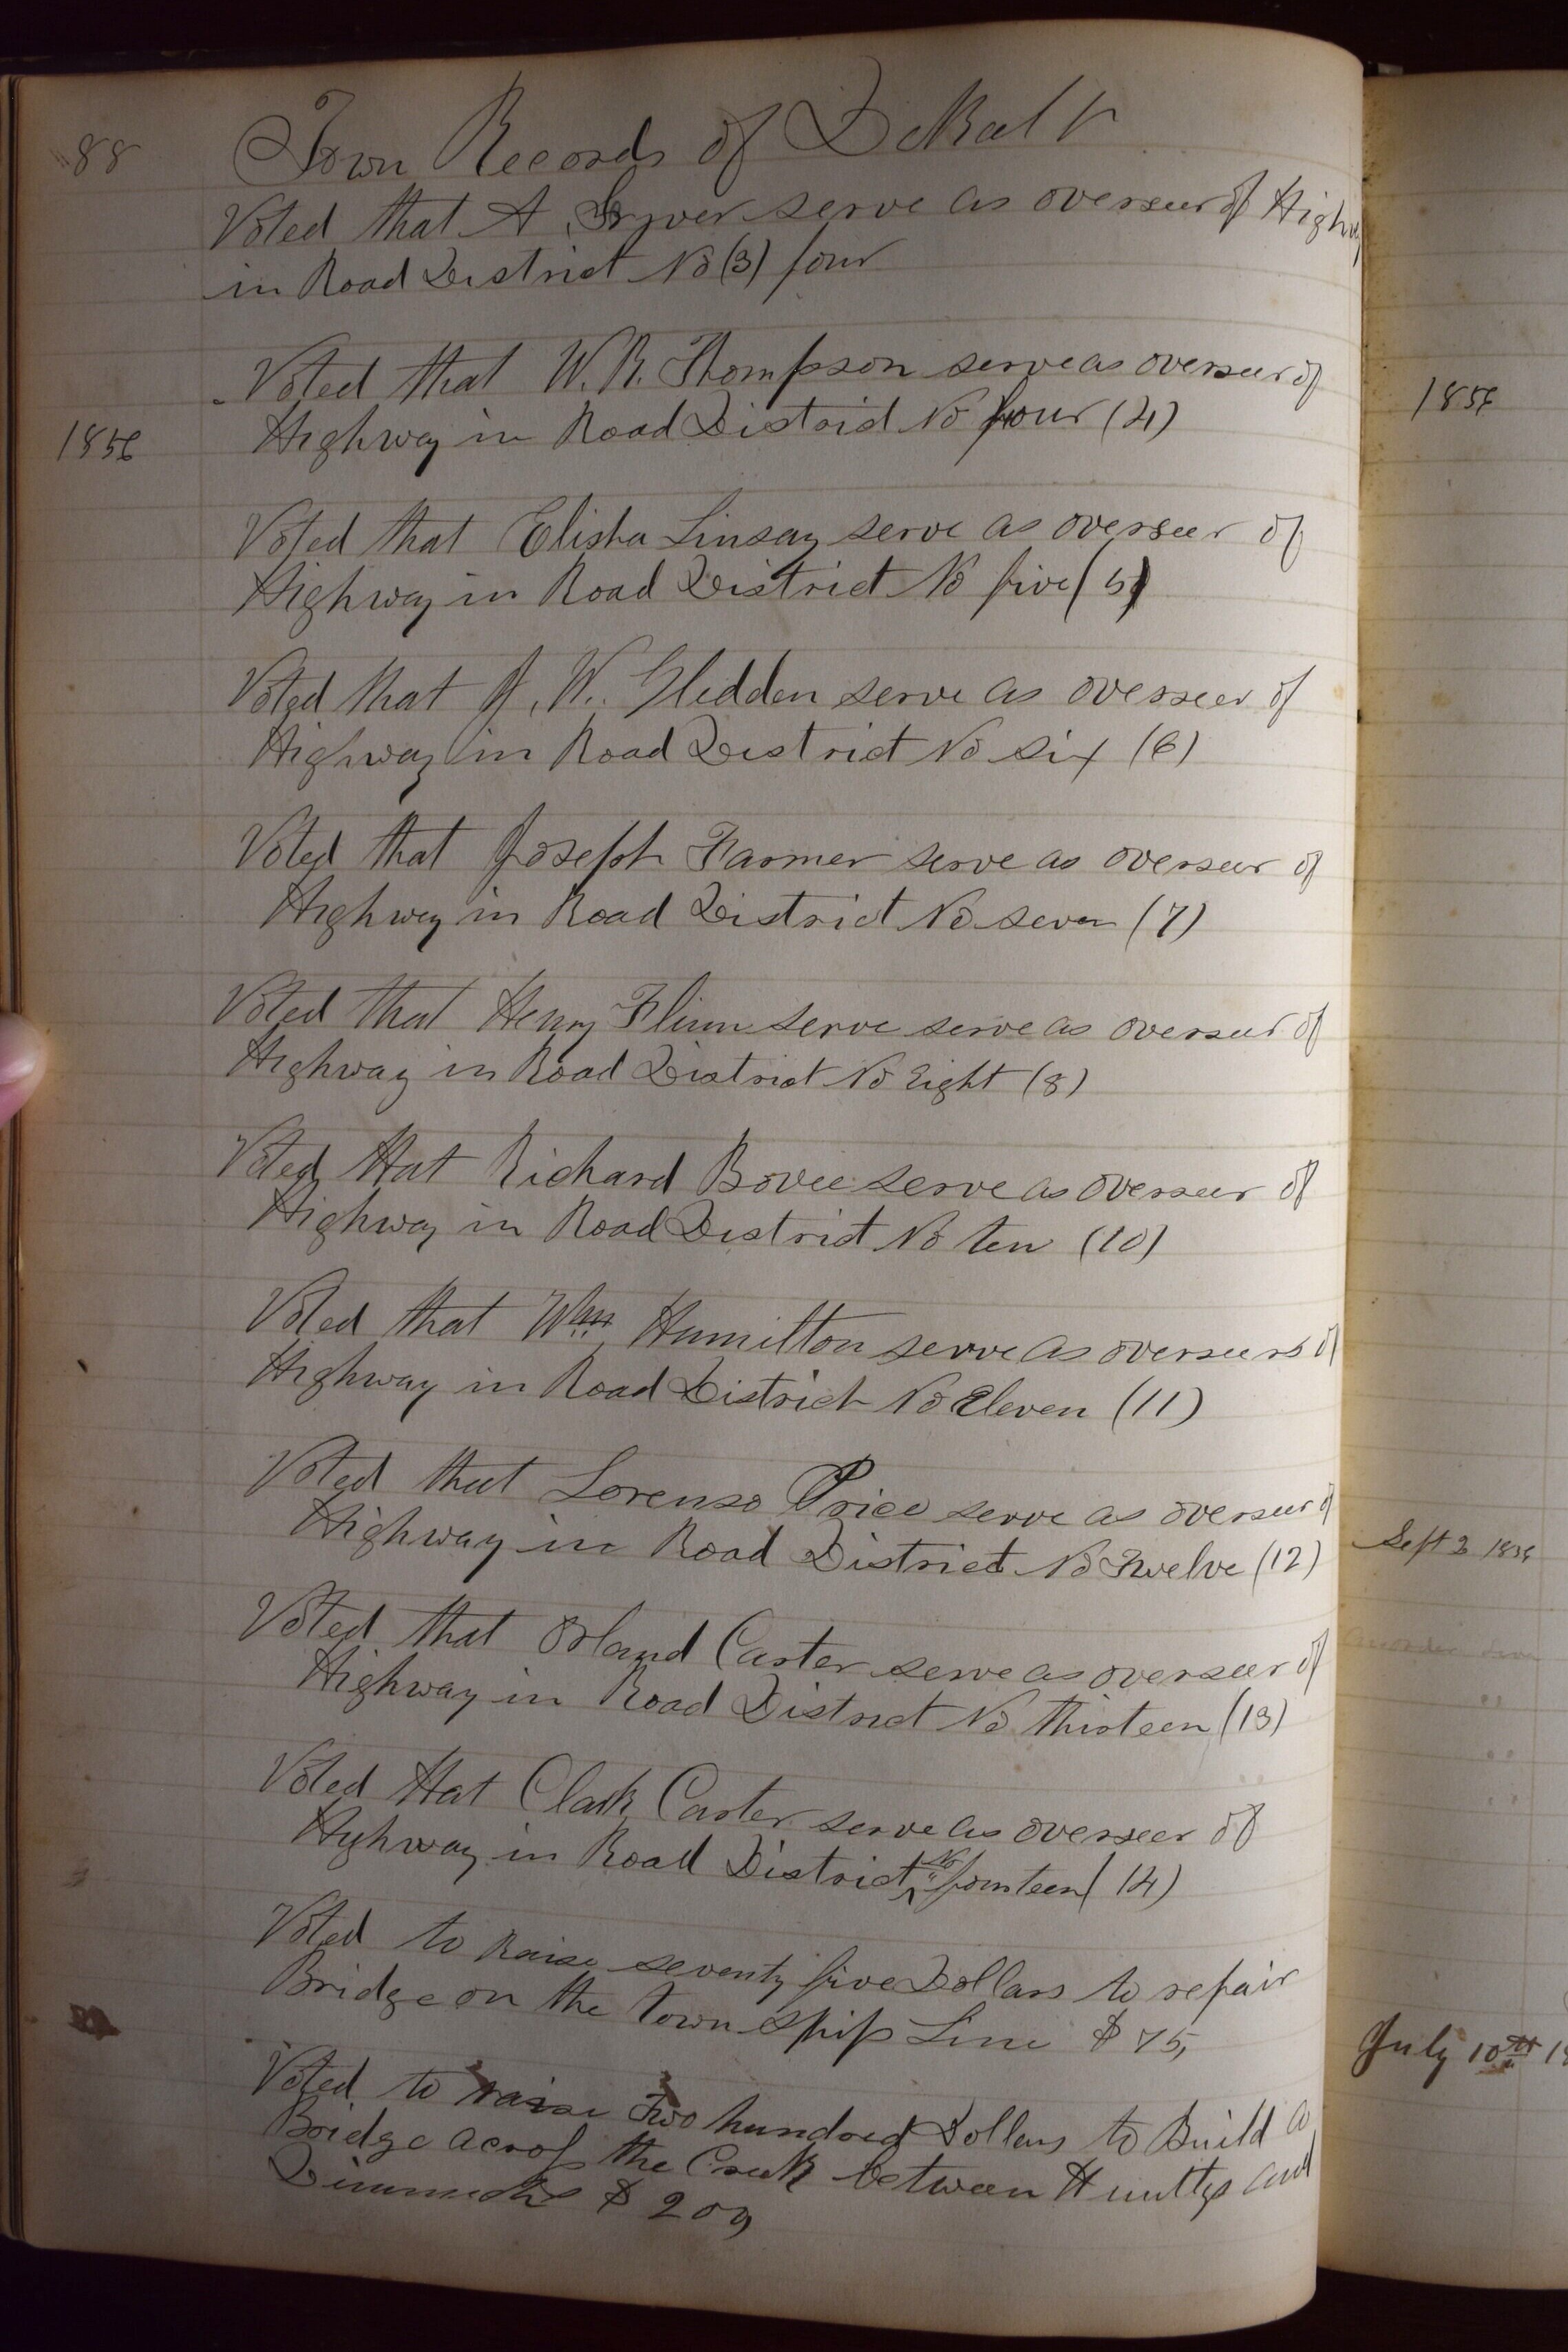 88
Town Records of DeKalb
Voted that A. serve as overseer of Highw
in Road District No (3) four
Voted that W. R. Thompson serve as overseer of
1856
Highway in Road District No four (4)
Voted that Elisha Linsay serve as overseer of
Highway in Road District No five (5)
Voted that J. W. Glidden serve as overseer of
Highway in Road District No six (6)
Voted that Joseph Farmer serve as overseer of
Highway in Road District No seven (7)
Voted that Henry Flinn serve serve as overseer of
Highway in Road District No Eight (8)
Voted that Richard Bovee serve as overseer of
Highway in Road District No ten (10)
Voted that Wm Hamilton serve as overseers of
Highway in Road District No Eleven (11)
Voted that Lorenzo Price serve as overseer of
Highway in Road District No Twelve (12)
Voted that Orland Carter serve as overseer of
Highway in Road District No thirteen (13)
Voted that Clark Carter serve as overseer of
Highway in Road District No fourteen (14)
Voted to Raise seventy five Dollars to repair
Bridge on the town ship Line $75,
Voted to raise Two hundred Dollars to Build a
Bridge across the Creek between Huntleys and
$200,
1856
Sept 2 1856
July 10th 18